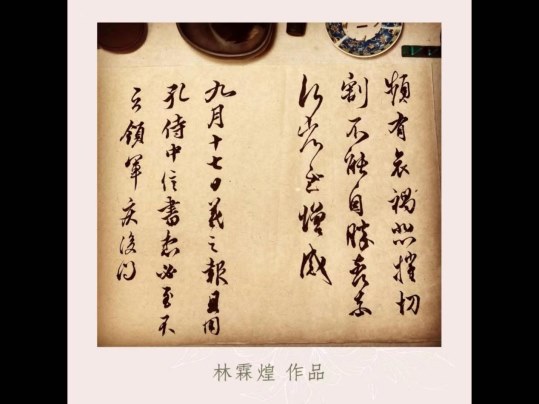 頻有哀禍悲摧切
割不能自勝奈何奈
何省慰增感
九月十七日羲之報且因
孔侍中信書想必至不
知領軍疾後問
林霖煌 作品